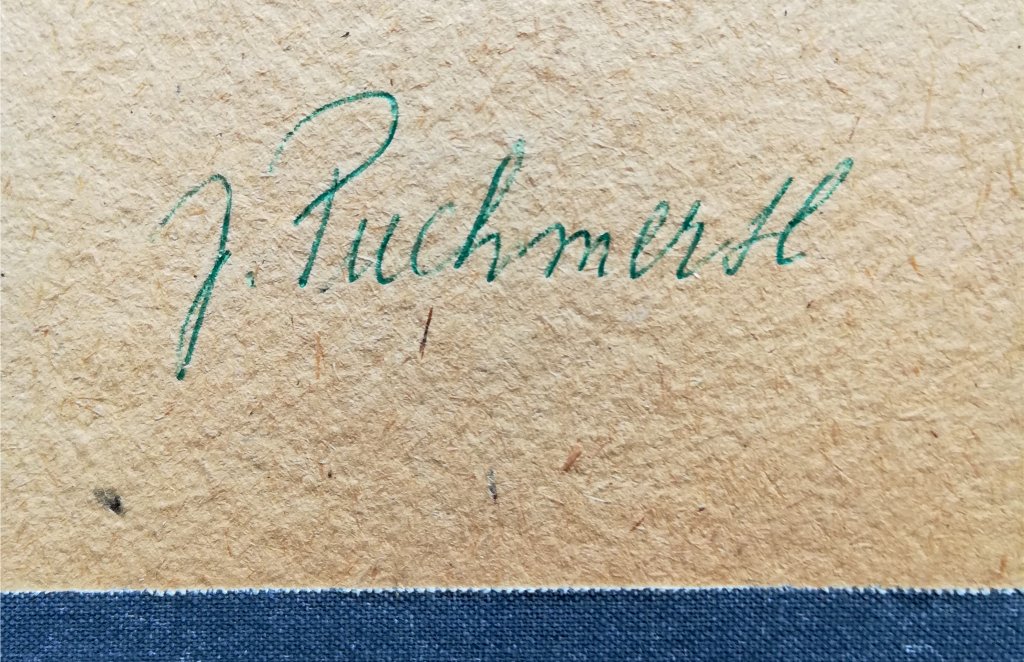 J. Puchmertl